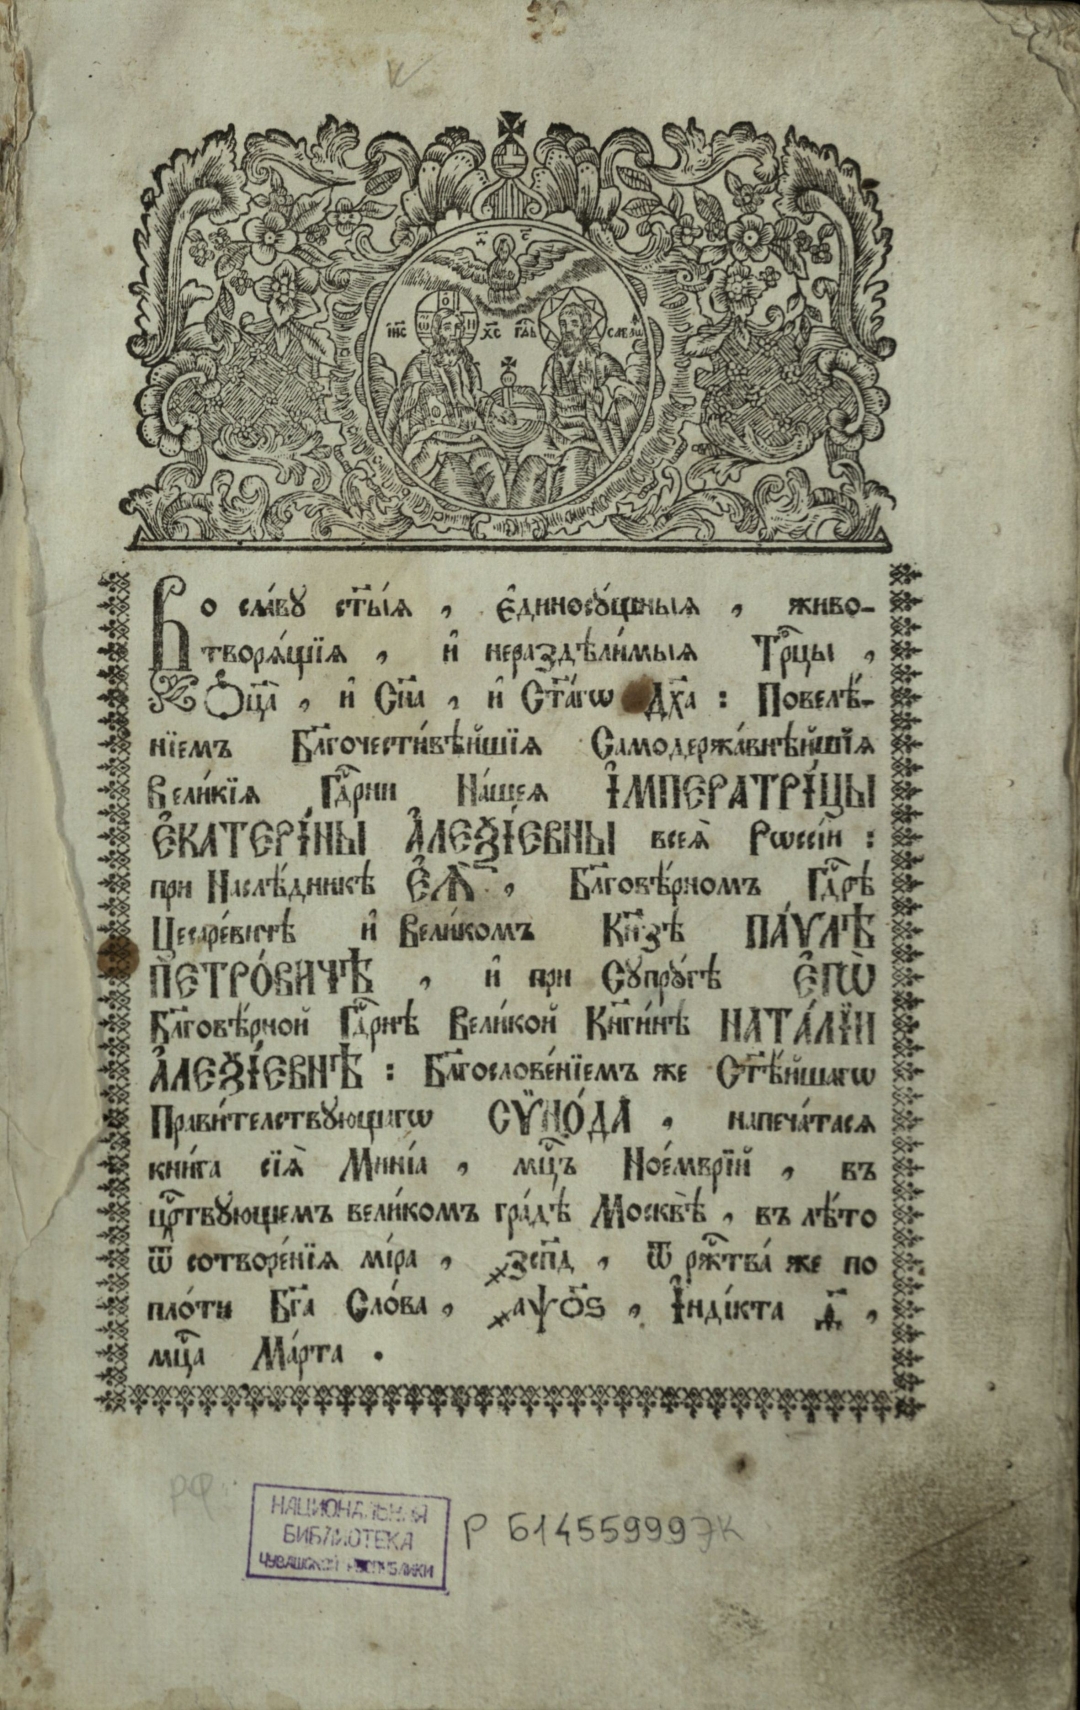 І҃ИС Х҃С Г҃ДЬ САВАѠ
Во сла́вꙋ ст҃ы́ѧ , є҆диносꙋ́щныѧ , живо-
творѧ́щїѧ , и҆ нераздѣли́мыѧ Трⷪ҇цы ,
Ѻ҆ц҃а̀ , и҆ Сн҃а , и҆ Ст҃а́гѡ Дх҃а : Повелѣ́-
нїемъ Бл҃гочести́вѣйшїѧ Самодержа́внѣйшїѧ
Вели́кїѧ Гдⷭ҇рни На́шеѧ І҆МПЕРАТРІ́ЦЫ
Є҆КАТЕРІ́НЫ А҆ЛЕѮІ́ЕВНЫ всеѧ̀ Рѡссі́и :
при Наслѣ́дникѣ Є҆Ѧ̀ , Бл҃говѣ́рномъ Гдⷭ҇рѣ
Цесаре́вичѣ и҆ Вели́комъ Кн҃зѣ ПА́ѴЛѢ
ПЕТРО́ВИЧѢ , и҆ при Сꙋпрꙋ́гѣ Є҆ГѠ̀
Бл҃говѣ́рной Гдⷭ҇рнѣ Вели́кой Кн҃ги́нѣ НАТА́ЛЇИ
А҆ЛЕѮІ́ЕВНѢ : Бл҃гослове́нїемъ же Ст҃ѣ́йшагѡ
Прави́телствꙋющагѡ СѴНО́ДА , напеча́тасѧ
кни́га сїѧ̀ Мині́а , мцⷭ҇ъ Ное́мврїй , въ
црⷭ҇твꙋющемъ вели́комъ гра́дѣ Москвѣ̀ , въ лѣ́то
ѿ сотворе́нїѧ мі́ра , ҂зсп҃д , ѿ ржⷭ҇тва́ же по
пло́ти Бг҃а Сло́ва , ҂аѱо҃ѕ , І҆нді́кта ѳ҃ ,
мцⷭ҇а Ма́рта .
НАЦИОНАЛЬНАЯ
БИБЛИОТЕКА
ЧУВАШСКОЙ РЕСПУБЛИКИ
РФ
Р Б1455999ЭК